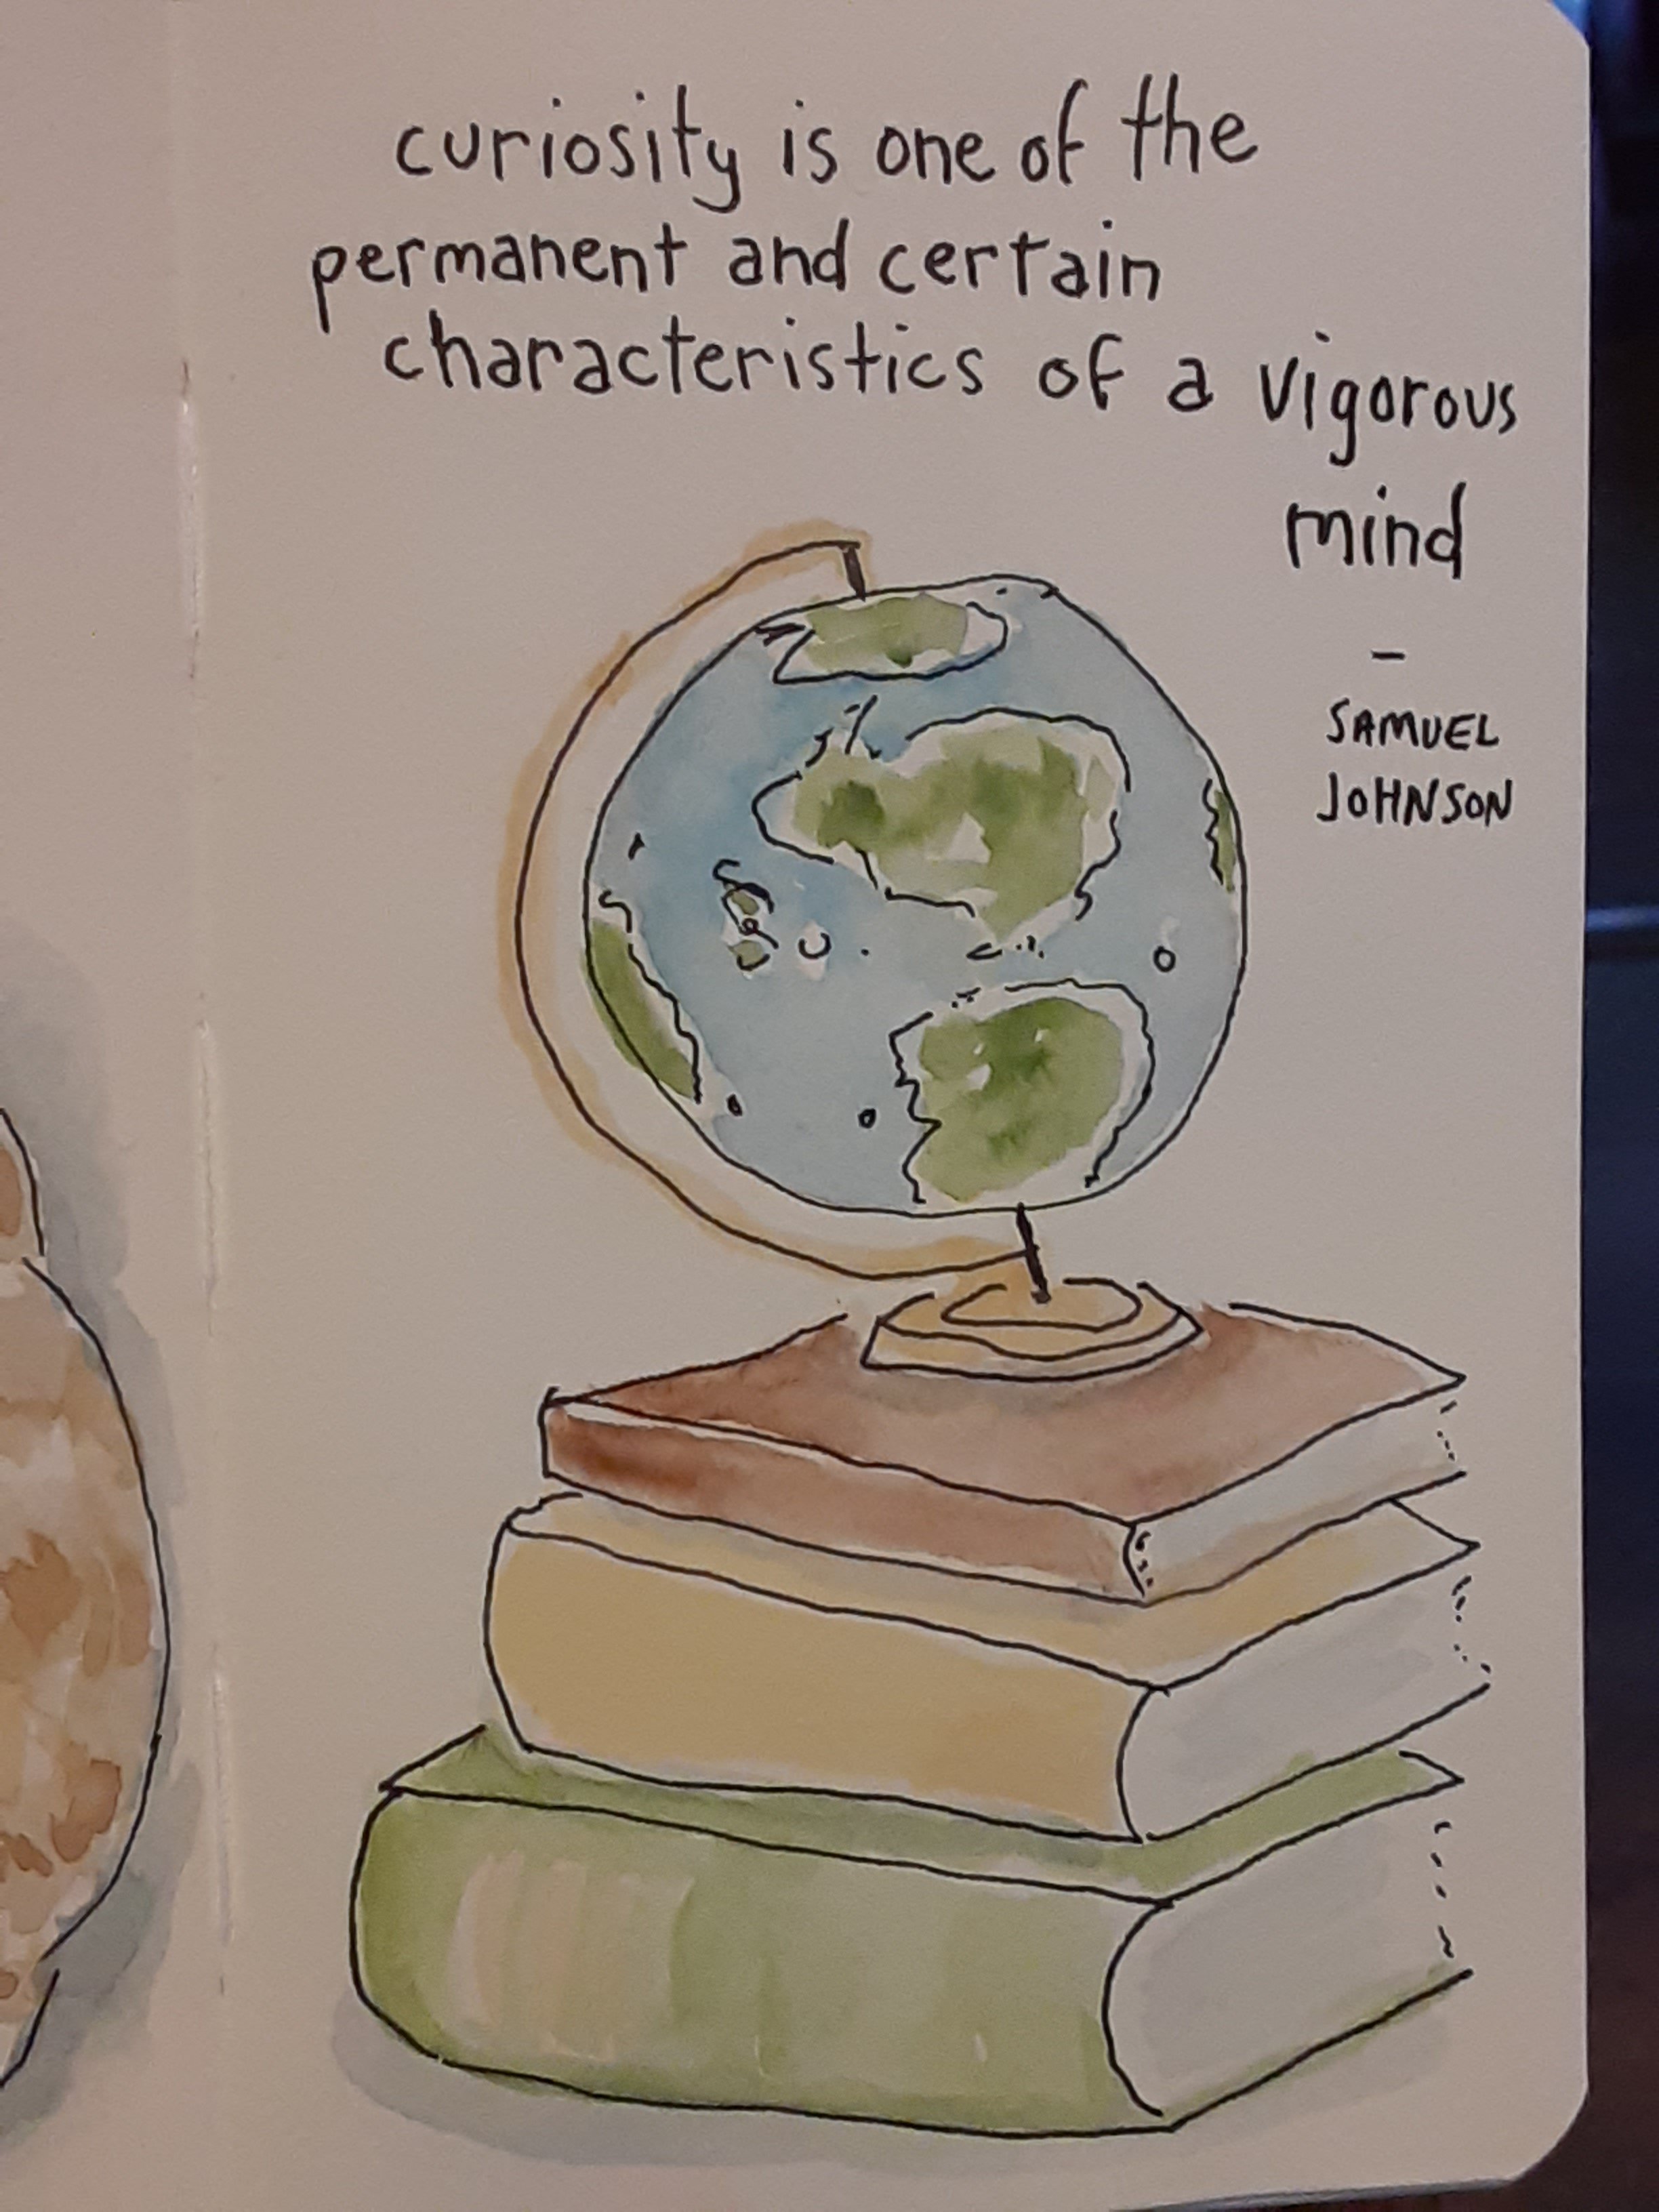 curiosity is one of the
permanent and certain
characteristics of a vigorous
mind
–
SAMUEL
JOHNSON